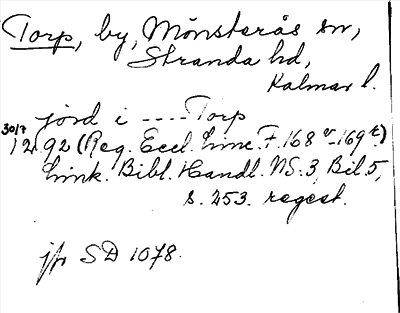 Torp, by, Mönsterås sn,
Stranda hd,
Kalmar l.
jord i ---- Torp
30/7
1292 (Reg. Eccl. Linc. F. 168 v - 169 r.)
Link. Bibl. Handl. NS. 3, Bil. 5,
s. 253. regest.
jfr SD 1078.